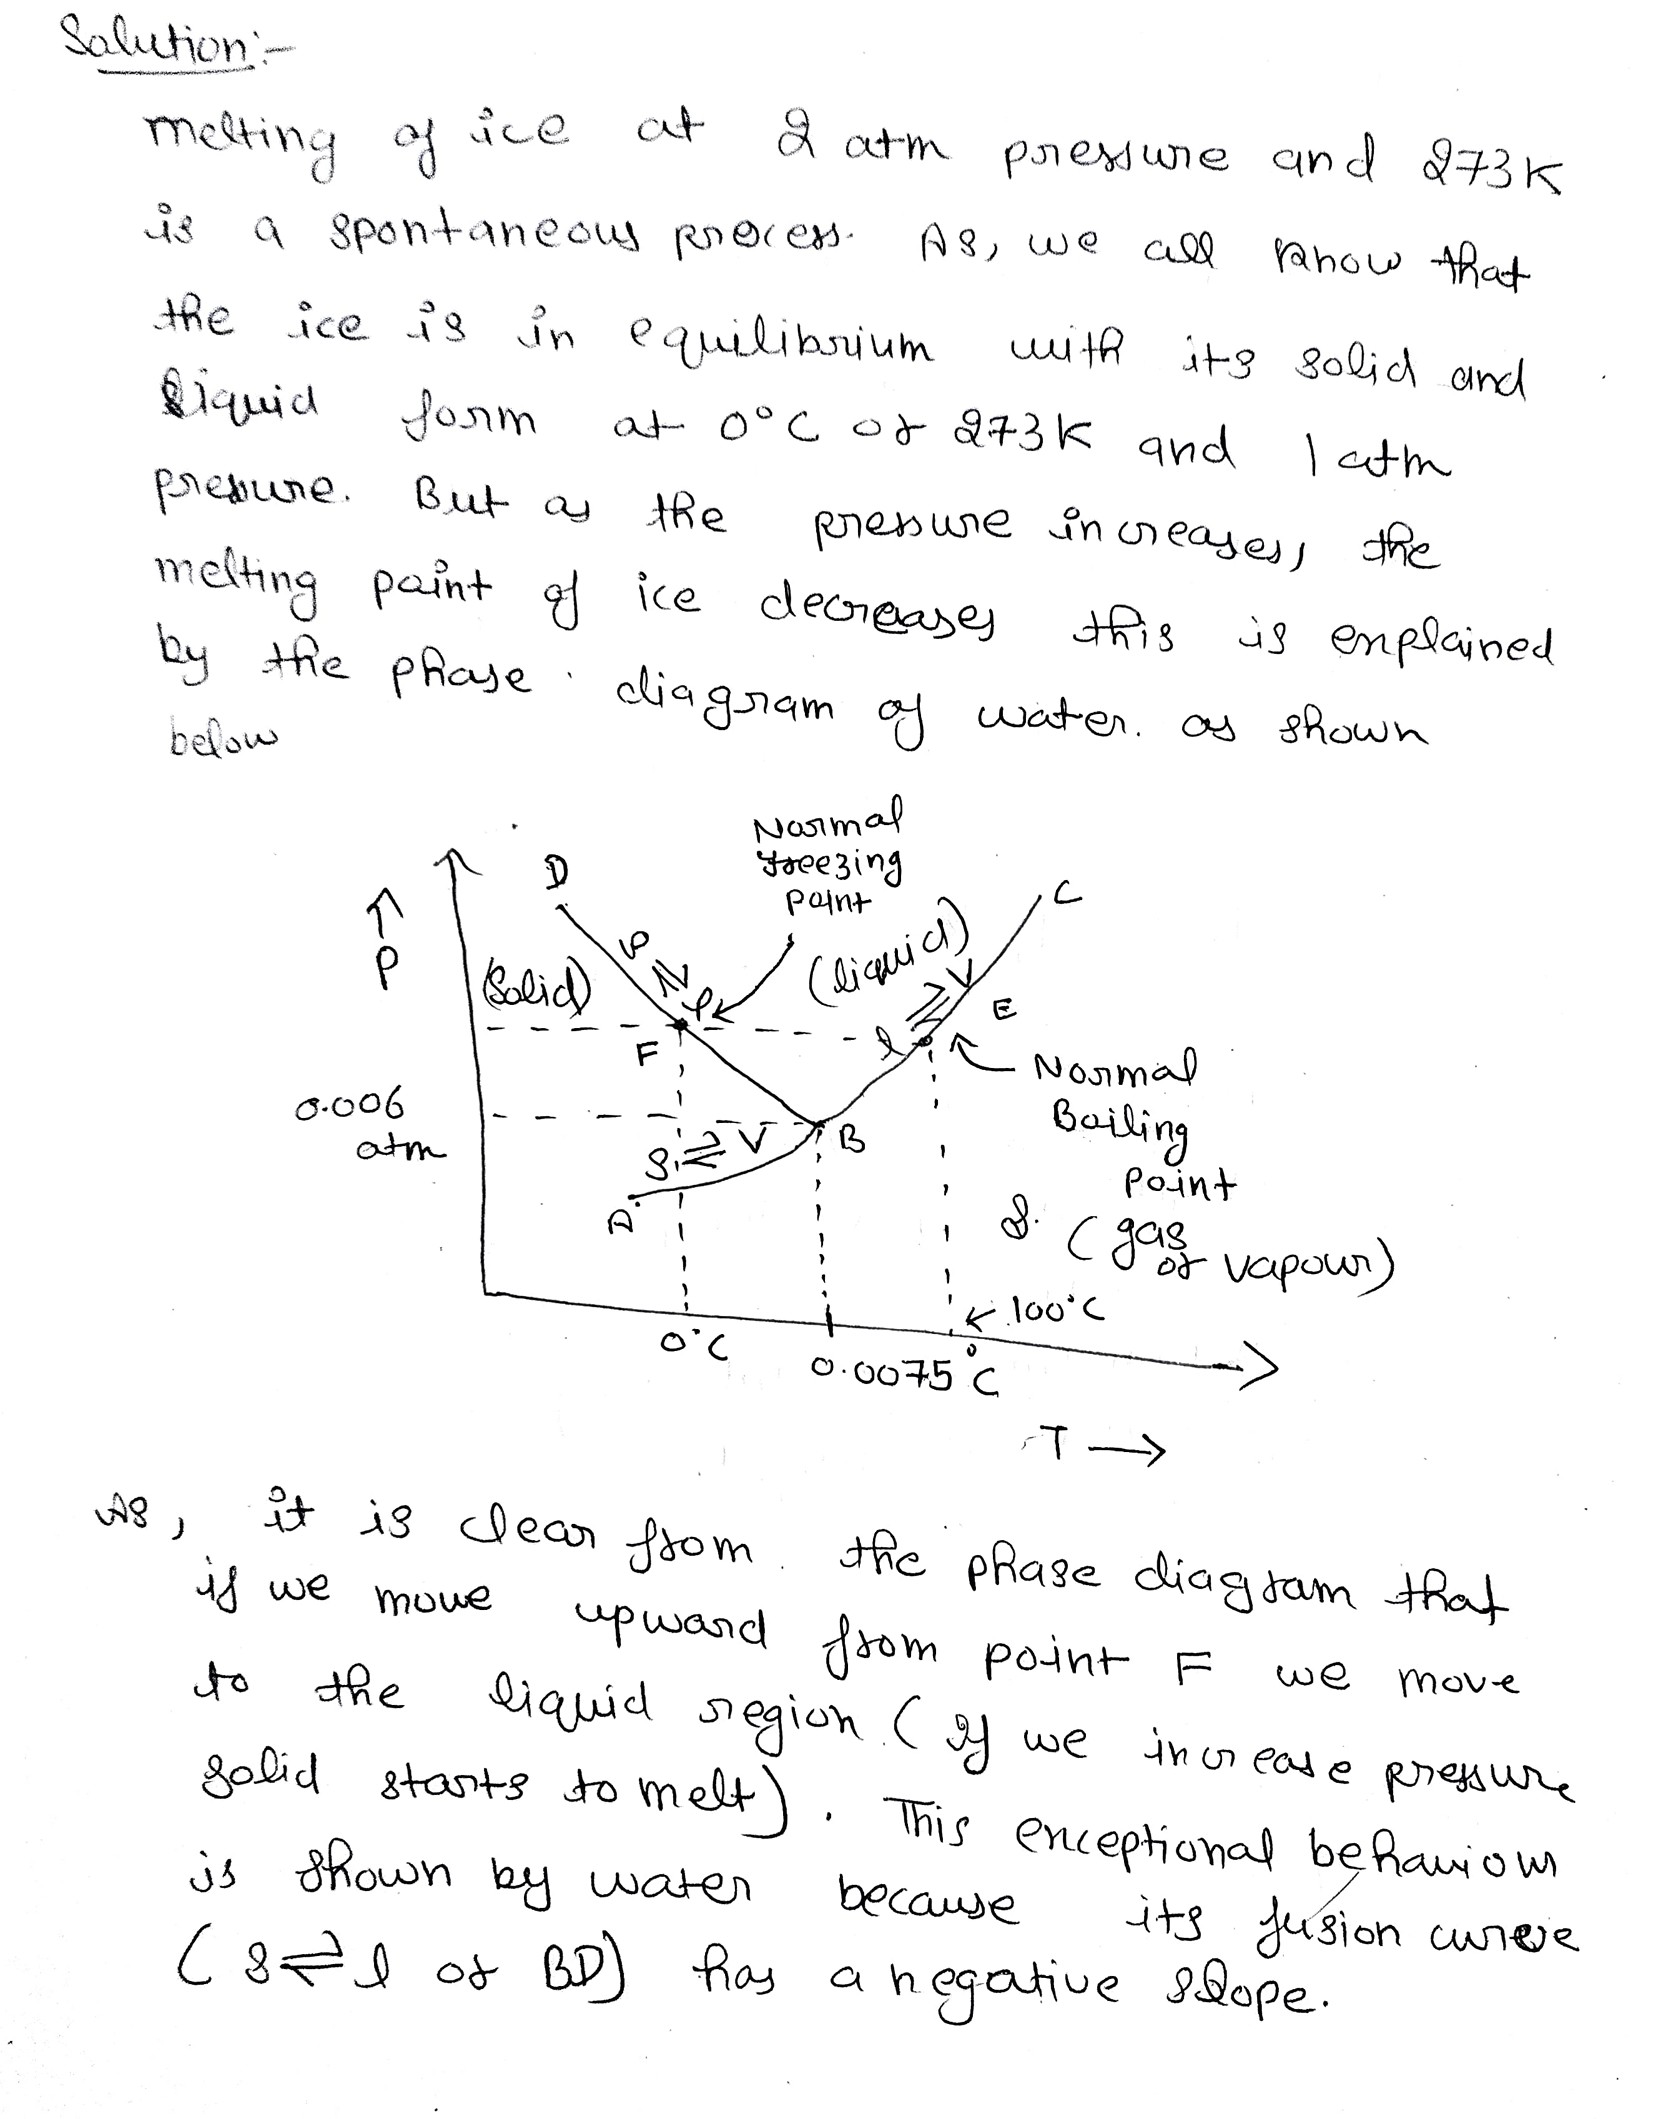 Solution:-
melting of ice at 2 atm pressure and 273K
is a spontaneous process. As, we all know that
the ice is in equilibrium with its solid and
liquid form at 0°C or 273K and 1 atm
pressure. But as the pressure increases, the
melting point of ice decreases this is explained
by the phase diagram of water. as shown
below
Normal
freezing
point
D
C
↑
P
(Solid)
S ⇌ l
(liquid)
l ⇌ V
E
F
Normal
Boiling
Point
0.006
atm
S ⇌ V
B
A
(gas
or vapour)
← 100°C
0°C
0.0075°C
T →
As, it is clear from the phase diagram that
if we move upward from point F we move
to the liquid region (If we increase pressure
solid starts to melt). This exceptional behaviour
is shown by water because its fusion curve
(S⇌l or BD) has a negative slope.